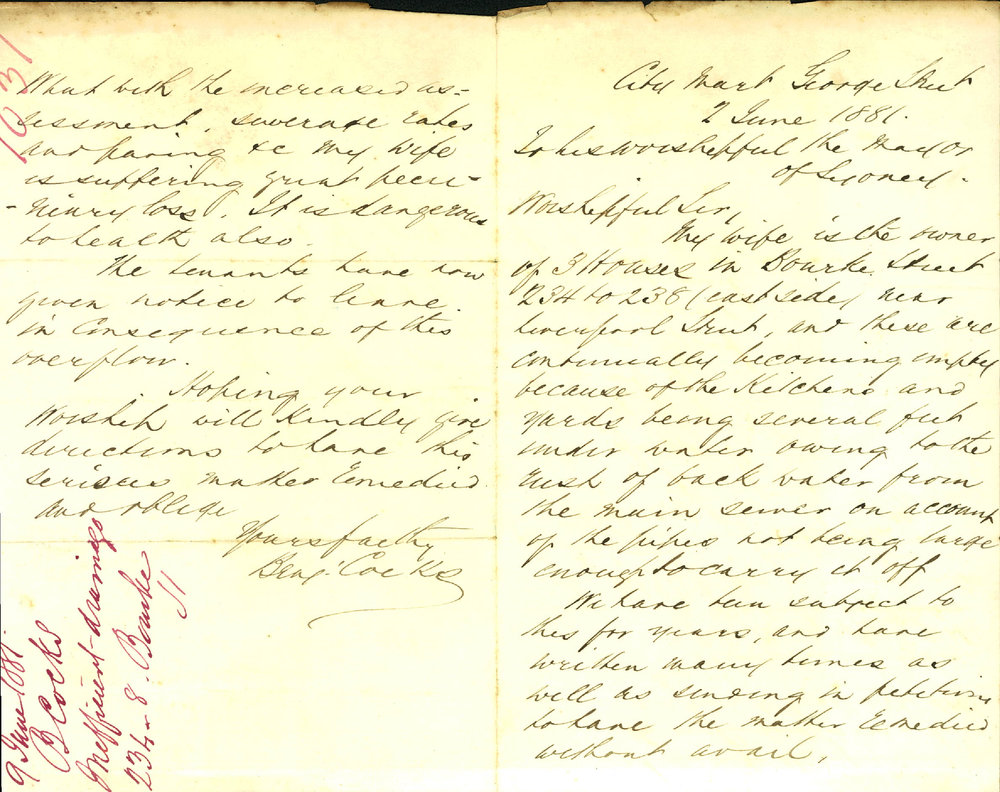 City Mart George Street
2 June 1881.
To his Worshipful the Mayor
of Sydney.
Worshipful Sir,
My wife is the owner
of 3 Houses in Bourke Street
234 to 238 (east side) near
Liverpool Street, and these are
continually becoming empty
because of the Kitchens and
yards being several feet
under water owing to the
rush of back water from
the main sewer on account
of the pipes not being large
enough to carry it off
We have been subject to
this for years, and have
written many times as
well as sending in petitions
to have the matter remedied
without avail.
What with the increased as-
sessment, sewerage rates
and paving &c My Wife
is suffering great pecu-
-niary loss. It is dangerous
to health also.
The tenants have now
given notice to leave
in Consequence of this
overflow.
Hoping your
Worship will Kindly give
directions to have this
serious matter remedied
and oblige
Yours faithy
Benj. Cocks
1031
9 June 1881.
B Cocks
Inefficient drainage
234-8. Bourke
St